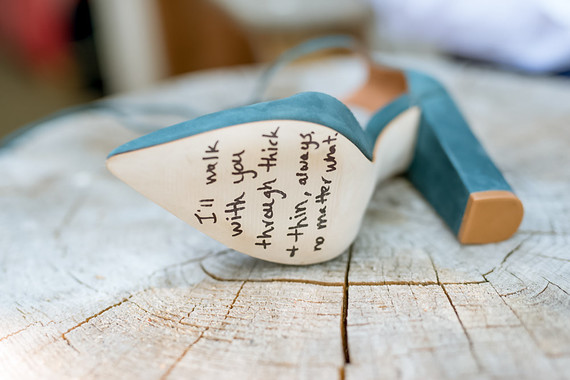 I'll walk
with you
through thick
+ thin, always.
no matter what.